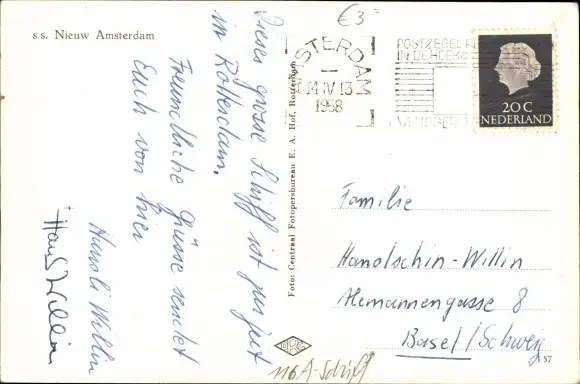 s.s. Nieuw Amsterdam
€3
Dieses grosse Schiff ist zur zeit
in Rotterdam.
Freundliche Grüsse sendet
Euch von hier
Hansli Willin
Hans Willin
Foto: Centraal Fotopersbureau E. A. Hof, Rotterdam
AMSTERDAM
14 IV 13
1958
POSTZEGEL R
IN DE HOEK
20 C
NEDERLAND
Familie
Handschin-Willin
Alemannengasse 8
Basel / Schweiz
57
116 A-Schiff